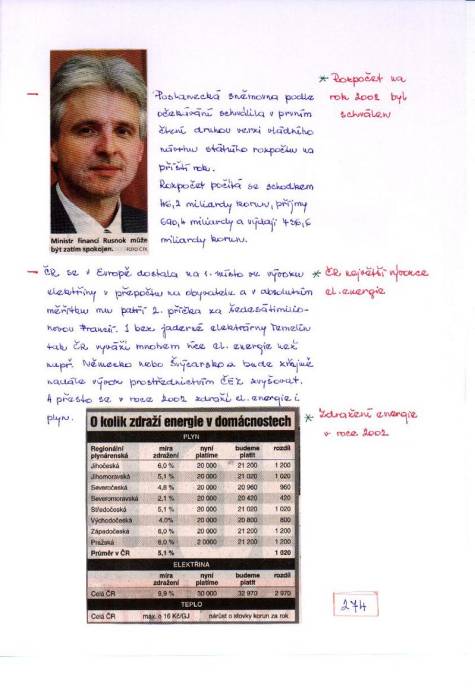 Poslanecká sněmovna podle
očekávání schválila v prvním
čtení druhou verzi vládního
návrhu státního rozpočtu na
příští rok.
Rozpočet počítá se schodkem
46,2 miliardy korun, příjmy
690,4 miliardy a výdaji 736,6
miliardy korun.
* Rozpočet na
rok 2002 byl
schválen
Ministr financí Rusnok může
být zatím spokojen. FOTO ČTK
ČR se v Evropě dostala na 1. místo ve vývozu
elektřiny v přepočtu na obyvatele a v absolutním
měřítku mu patří 2. příčka za šedesátimilio-
novou Francií. I bez jaderné elektrárny Temelín
tak ČR vyváží mnohem více el. energie než
např. Německo nebo Švýcarsko a bude zřejmě
nadále vývoz prostřednictvím ČEZ zvyšovat.
A přesto se v roce 2002 zdraží el. energie i
plyn.
* ČR největší vývozce
el. energie
* Zdražení energie
v roce 2002
O kolik zdraží energie v domácnostech
PLYN
Regionální plynárenská míra zdražení nyní platíme budeme platit rozdíl
Jihočeská 6,0 % 20 000 21 200 1 200
Jihomoravská 5,1 % 20 000 21 020 1 020
Severočeská 4,8 % 20 000 20 960 960
Severomoravská 2,1 % 20 000 20 420 420
Středočeská 5,1 % 20 000 21 020 1 020
Východočeská 4,0% 20 000 20 800 800
Západočeská 6,0 % 20 000 21 200 1 200
Pražská 6,0 % 2 0000 21 200 1 200
Průměr v ČR 5,1 % 1 020
ELEKTŘINA
míra zdražení nyní platíme budeme platit rozdíl
Celá ČR 9,9 % 30 000 32 970 2 970
TEPLO
Celá ČR max. o 16 Kč/GJ nárůst o stovky korun za rok
274